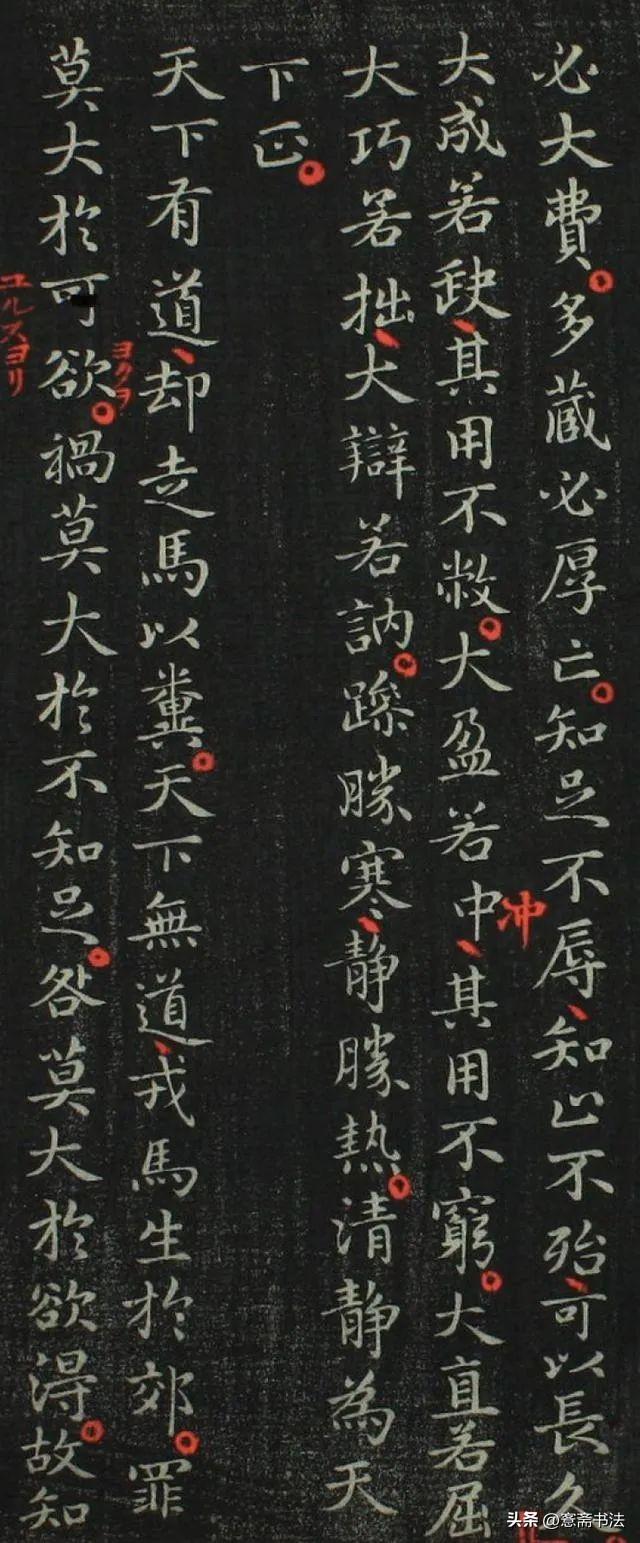 必大費。多蔵必厚亡。知足不辱、知止不殆、可以長久
大成若缺、其用不敝。大盈若中、其用不窮。大直若屈
冲
大巧若拙、大辯若訥。躁勝寒、静勝熱。清静為天
下正。
天下有道、却走馬以糞。天下無道、戎馬生於郊。罪
莫大於可欲。禍莫大於不知足。咎莫大於欲得。故知
ヨクヲ
ユルスヨリ
头条 @愙斋书法